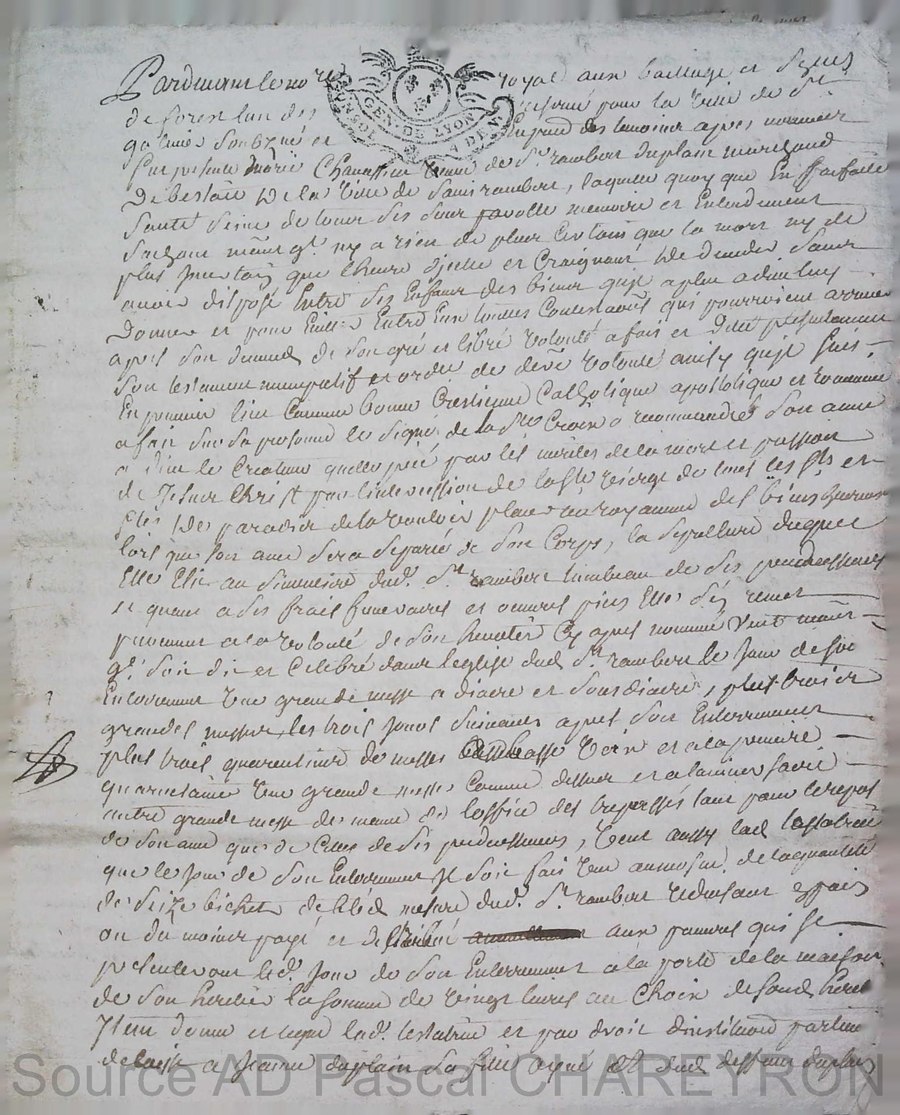 Pardevant le no.re royal aux bailliage et
de forest lun des pour la ville de St
qu Lunie Soubz.né et des temoins apres nommés
fut presente marie Chanassieu veuve de Sr. rambert Duplain marchand
De la ville de Saint rambert, laquelle quoy que En parfaitte
Santé Saine de tous ses sens parolle memoire et Entendement
Sachant même ql. ny a rien de plus Certain que la mort ny de
plus Incertain que lheure djcelle et Craignant De Deceder Sans
avoir disposé Entre Ses Enfans Des biens qujl a plu a dieu luy
Donner et pour Eviter Entre Eux toutes Contestations qui pourroient arriver
apres Son Decés de Son gré et libre volonté a fait et
Son testament nuncupatif et ordce. de derre. volonté ainsy qujl Suit
En premier lieu Comme bonne Crestienne Catholique apostolique et romaine
a fait Sur Sa personne le Signe de la Ste Croix a recommandé Son ame
a dieu le Createur quelle prie par les merites de la mort et passion
de Jesus Christ par lintercession de la ste Vierge de tous les sts et
stes De paradis de la vouloir placer au royaume des bienheureux
lors que Son ame Sera Separée de Son Corps, la Sepulture duquel
Elle Elit au Simmetiere dud. St. rambert tombeau de Ses predecesseurs
et quant a Ses frais funeraires et oeuvres pies Elle Sen remet
purement a la volonté de Son heritier Cy apres nommé Veut même
ql. Soit dit et Celebré dans leglise dud. St. rambert le Jour de Son
Enterrement Une grande messe a diacre et Sousdiacre, plus trois
grandes messes, les trois Jours Suivants apres Son Enterrement
plus trois quarentaines de messes basse Voix et a la premiere
quarentaine Une grande messe Comme dessus et a laniversaire
autre grande messe de meme et loffice des trepassés tant pour le repos
de Son ame que de Ceux de Ses predecesseurs, Veut aussy lad. testatrice
que le Jour de Son Enterrement Jl Soit fait Une aumosne de la quantité
de Seize bichets de bled mesure dud. St. rambert
ou du moins payé et delivré aux pauvres qui Se
presenteront led. Jour de Son Enterrement a la porte de la maison
de Son heritier la Somme de Vingt livres au Choix de Sond. heritier
Jtem donne et legue lad. testatrice et par droit dinstitution particu
delaisse a Jeanne duplain Sa fille et dud. deffunt duplain
Source AD Pascal CHAREYRON